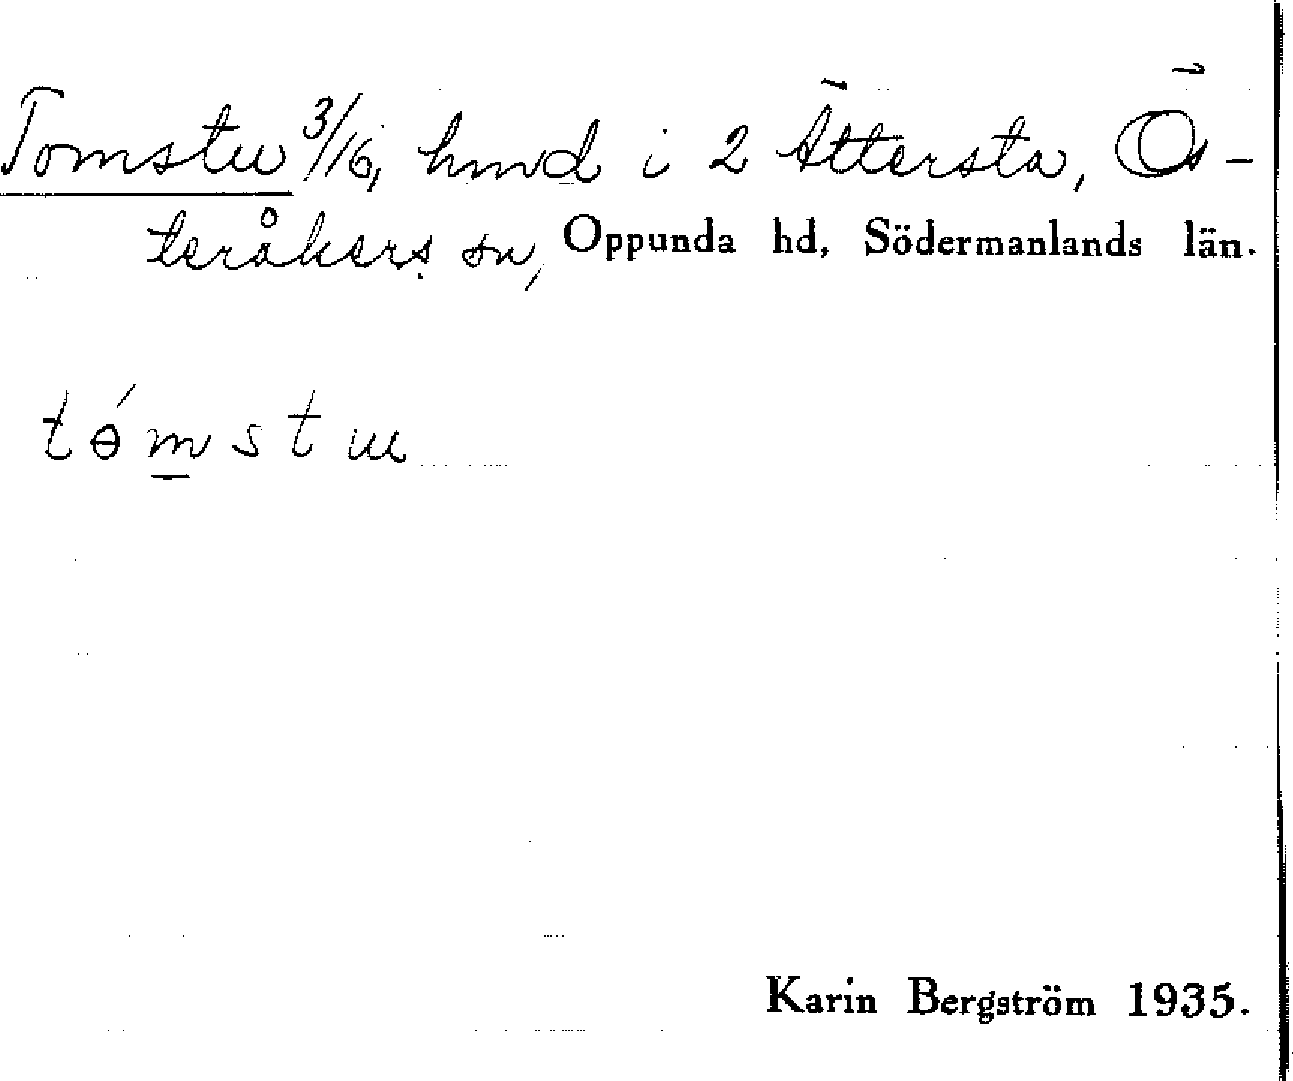 Tomstu 3/16, hmd i 2 Ättersta, Ös-
teråkers sn, Oppunda hd, Södermanlands län.
tɵ́m̲stɯ
Karin Bergström 1935.